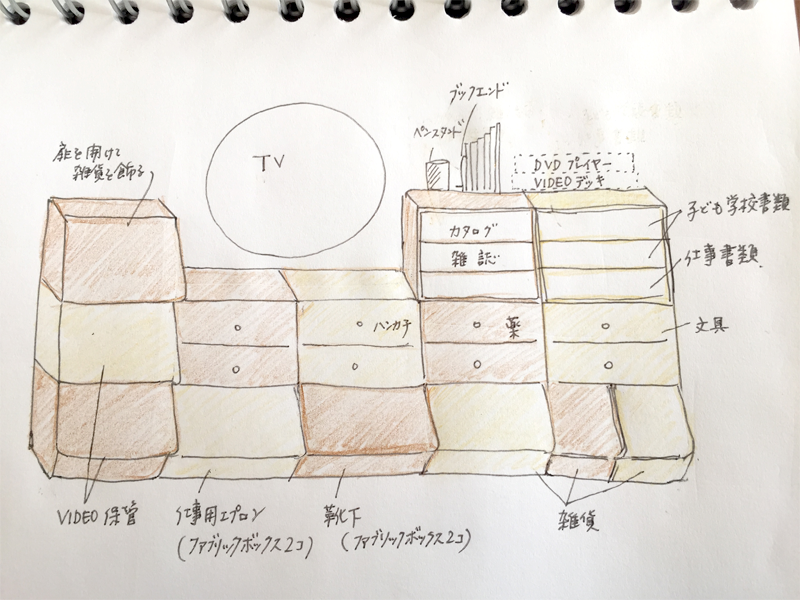 ブックエンド
ペンスタンド
TV
扉を開けて
雑貨を飾る
DVD プレイヤー
VIDEO デッキ
カタログ
雑誌
子ども学校書類
仕事書類
ハンカチ
薬
文具
VIDEO 保管
仕事用エプロン
(ファブリックボックス2コ)
靴下
(ファブリックボックス2コ)
雑貨